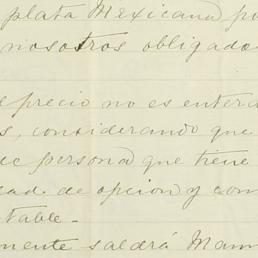 plata Mexicana po
nosotros obligado
precio no es entera
s, considerando que
de persona que tiene
cad de opcion y com
table -
mente saldrá Mam